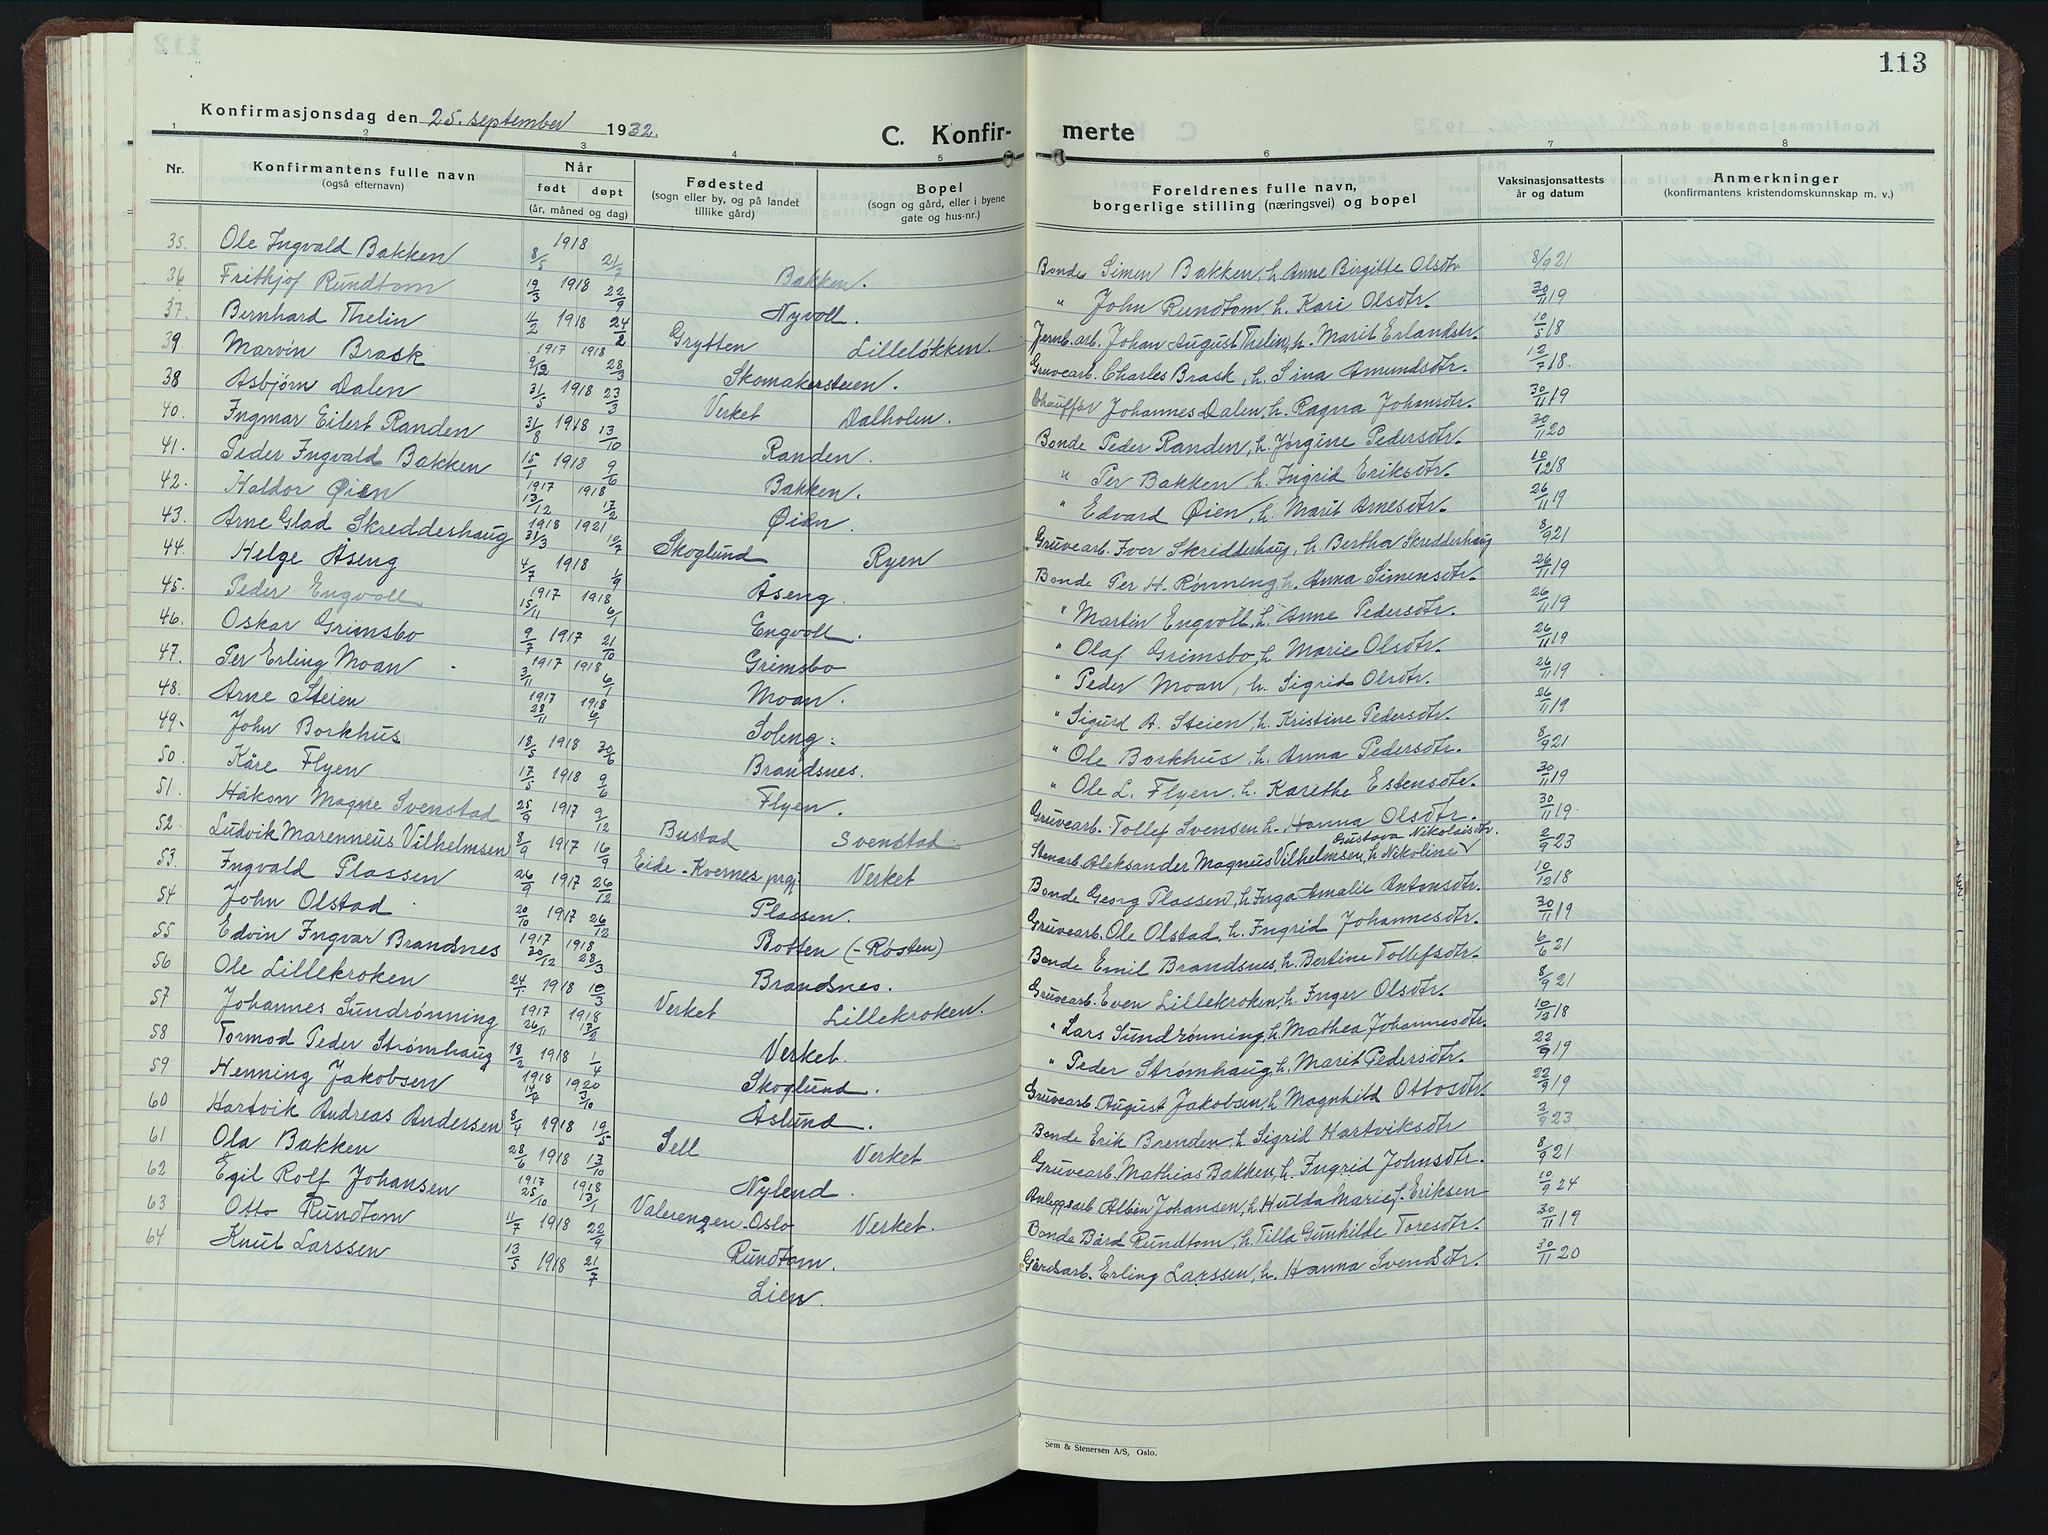 113
Konfirmasjonsdag den 25. september 1932.
C. Konfir- merte
1 2 3 4 5 6 7 8
Nr. Konfirmantens fulle navn (også efternavn) Når født døpt (år, måned og dag) Fødested (sogn eller by, og på landet tillike gård) Bopel (sogn og gård, eller i byene gate og hus-nr.) Foreldrenes fulle navn, borgerlige stilling (næringsvei) og bopel Vaksinasjonsattests år og datum Anmerkninger (konfirmantens kristendomskunnskap m. v.)
35. Ole Ingvald Bakken 1918 8/5 21/7 Bakken. Bonde Simen Bakken, h. Anne Birgitte Olsdtr. 8/9 21
36 Frithjof Rundtom 19/3 1918 22/9 Nyvoll. " John Rundtom, h. Kari Olsdtr. 30/11 19
37. Bernhard Thelin 11/2 1918 24/2 Grytten Lilleløkken. Jernb.arb. Johan August Thelin, h. Marit Erlandstr. 10/5 18
39 Marvin Brask 1917 1918 9/12 28/3 Skomakersteien. Gruvearb. Charles Brask, h. Sina Amundsdtr. 12/7 18.
38 Asbjørn Dalen 31/5 1918 23/3 Verket Dalholen. Chauffør Johannes Dalen, h. Ragna Johansdtr. 30/11 19
40. Ingmar Eilert Randen 31/8 1918 13/10 Randen. Bonde Peder Randen, h. Jørgine Pedersdtr. 30/11 20
41. Peder Ingvald Bakken 15/1 1918 9/6 Bakken. " Per Bakken, h. Ingrid Eriksdtr. 10/12 18
42. Haldor Øien 1917 1918 13/12 17/2 Øien. " Edvard Øien, h. Marit Arnesdtr. 26/11 19
43. Arne Glad Skreddeshaug 1918 1921 31/3 10/7 Skoglund Ryen Gruvearb. Iver Skridderhaug, h. Bertha Skredderhaug 8/9 21
44. Helge Åseng 4/7 1918 1/9 Åseng. Bonde Per H. Rønning, h. Anna Simensdtr. 26/11 19
45. Peder Engvoll 1917 1918 15/11 6/1 Engvoll. " Martin Engvoll, h. Anne Pedersdtr. 26/11 19
46. Oskar Grimsbo 9/7 1917 21/10 Grimsbo " Olaf Grimsbo, h. Marie Olsdtr. 26/11 19
47. Per Erling Moan 1917 1918 3/11 6/1 Moan. " Peder Moan, h. Sigrid Olsdtr. 26/11 19
48. Arne Steien 1917 1918 28/11 6/1 Soleng. " Sigurd A. Steien, h. Kristine Pedersdtr. 26/11 19
49. John Borkhus 18/5 1918 30/6 Brandsnes. " Ole Borkhus, h. Anna Pedersdtr. 8/9 21
50. Kåre Flyen 17/5 1918 9/6 Flyen. " Ole L. Flyen, h. Karethe Estensdtr. 30/11 19
51. Håkon Magne Svenstad 25/9 1917 9/12 Bustad Svenstad. Gruvearb. Tollef Svensen, h. Hanna Olsdtr. 30/11 19.
52. Ludvik Marenneus Vilhelmsen 8/9 1917 16/9 Eide - Kvernes prgj. Verket Stenarb. Aleksander Magnus Vilhelmsen, h. Nikoline Gustava Nikolaisdtr. 2/9 23
53. Ingvald Plassen 26/9 1917 26/12 Plassen. Bonde Georg Plassen, h. Inga Amalie Antonsdtr. 10/12 18
54 John Olstad 20/10 1917 26/12 Botten (-Røsten) Gruvearb. Ole Olstad, h. Ingrid Johannesdtr. 30/11 19
55 Edvin Ingvar Brandsnes 1917 1918 30/12 28/3 Brandsnes. Bonde Emil Brandsnes, h. Bertine Tollefsdtr. 6/6 21
56 Ole Lillekroken 24/1 1918 10/3 Verket Lillekroken. Gruvearb. Even Lillekroken, h. Inger Olsdtr. 8/9 21
57 Johannes Sundrønning 1917 1918 26/11 17/2 Verket. " Lars Sundrønning, h. Mathea Johannesdtr. 10/12 18
58 Tormod Peder Strømhaug 18/2 1918 1/4 Skoglund. " Peder Strømhaug, h. Marit Pedersdtr. 22/9 19
59 Henning Jakobsen 1918 1920 14/7 3/10 Åslund. Gruvearb. August Jakobsen, h. Magnhild Ottosdtr. 22/9 19
60 Hartvik Andreas Andersen 8/4 1918 19/5 Sell Verket Bonde Erik Brenden, h. Sigrid Hartviksdtr 2/9 23
61 Ola Bakken 28/6 1918 13/10 Nylend. Gruvearb. Mathias Bakken, h. Ingrid Johnsdtr. 8/9 21
62 Egil Rolf Johansen 1917 1918 25/10 13/1 Valerengen - Oslo Verket. Anleggsarb. Albin Johansen, h. Hulda Marie f. Eriksen 10/9 24
63 Otto Rundtom 11/7 1918 22/9 Rundtom. Bonde Bård Rundtom, h. Tilla Gunhilde Toresdtr. 30/11 19
64 Knut Larssen 13/5 1918 21/7 Lien. Gårdsarb. Erling Larssen, h. Hanna Svensdtr. 30/11 20
Sem & Stenersen A/S, Oslo.